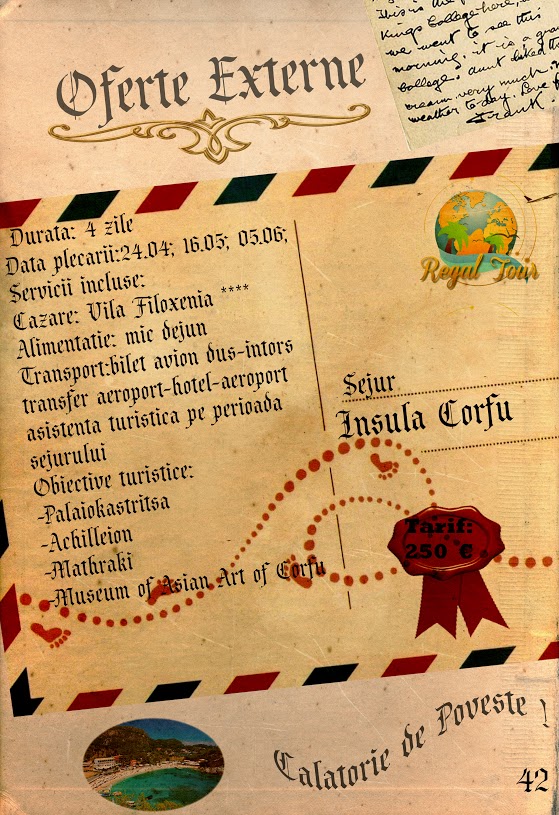 This is the
Kings College here,
we went to see this
morning, it is a gra
College. dint liked th
cream, very much.
weather to day. Love f
Frank.
Oferte Externe
Durata: 4 zile
Data plecarii:24.04; 16.05; 05.06;
Servicii incluse:
Cazare: Vila Filoxenia ****
Alimentatie: mic dejun
Transport:bilet avion dus-intors
transfer aeroport-hotel-aeroport
asistenta turistica pe perioada
sejurului
Obiective turistice:
-Palaiokastritsa
-Achilleion
-Mathraki
-Museum of Asian Art of Corfu
Royal Tour
Sejur
Insula Corfu
Tarif:
250 €
Calatorie de Poveste !
42